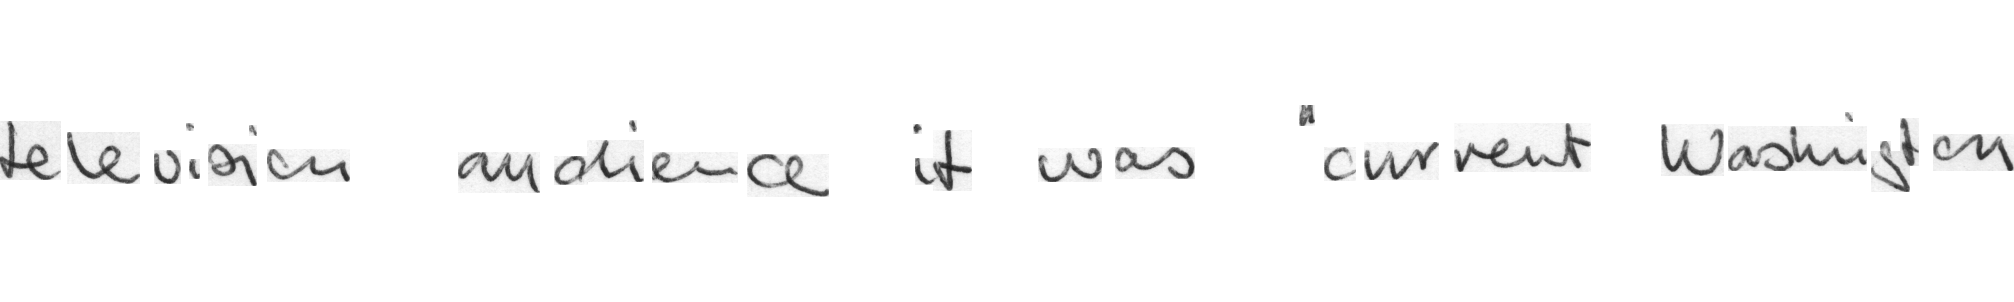 television audience it was "current Washington